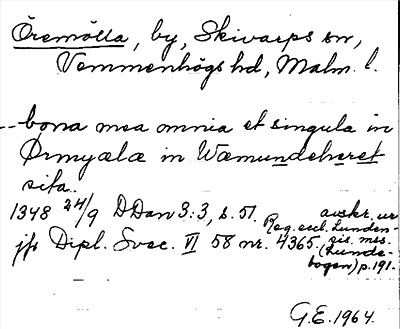 Öremölla, by, Skivarps sn,
Vemmenhögs hd, Malm. l.
--bona mea omnia et singula in
Ørmyælæ in Wæmundeheret
sita.
1348 24/9 DDan 3:3, s. 51. avskr. ur
Reg. eccl. Lunden-
jfr Dipl. Svec. VI 58 nr. 4365. sis. mss.
(Lunde-
bogen) p. 191.
G.E. 1964.